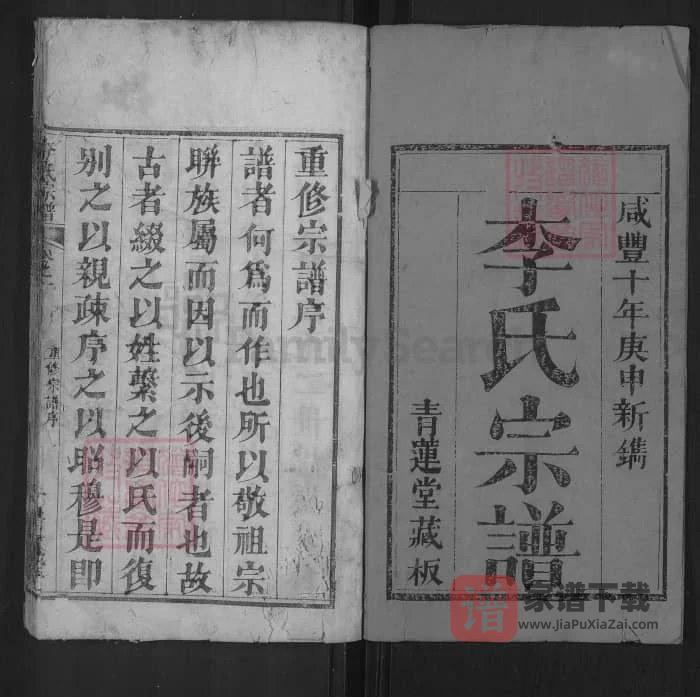 咸豐十年庚申新鐫
李氏宗譜
青蓮堂藏板
重修宗譜序
譜者何爲而作也所以敬祖宗
聯族屬而因以示後嗣者也故
古者綴之以姓繫之以氏而復
別之以親疎序之以昭穆是即
李氏宗譜
重修宗譜序
家谱下载
www.JiaPuXiaZai.com
谱
FamilySearch